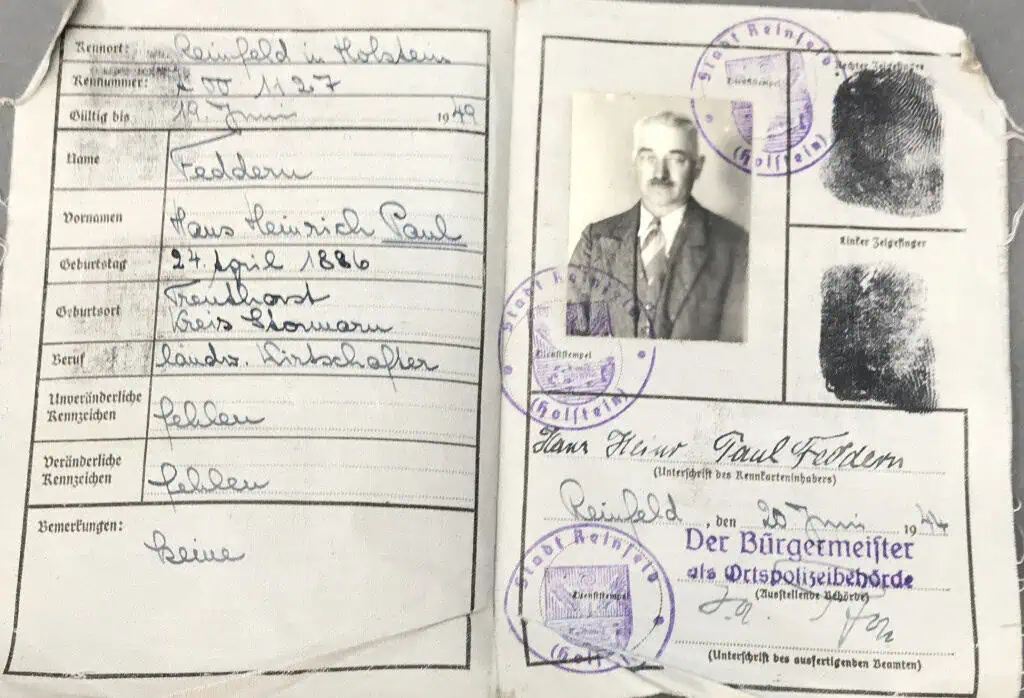 Kennort: Reinfeld in Holstein
Kennummer: A 00 1127
Gültig bis 19. Juni 1949
Name Feddern
Vornamen Hans Heinrich Paul
Geburtstag 24. April 1886
Geburtsort Trenthorst
Kreis Stormarn
Beruf landw. Wirtschafter
Unveränderliche Kennzeichen fehlen
Veränderliche Kennzeichen fehlen
Bemerkungen: Keine
Stadt Reinfeld
Dienststempel
(Holstein)
Rechter Zeigefinger
Linker Zeigefinger
Stadt Reinfeld
Dienststempel
(Holstein)
Hans Heinr Paul Feddern
(Unterschrift des Kennkarteninhabers)
Reinfeld, den 20 Juni 1944
Der Bürgermeister
als Ortspolizeibehörde
(Ausstellende Behörde)
Stadt Reinfeld
Dienststempel
(Unterschrift des ausfertigenden Beamten)